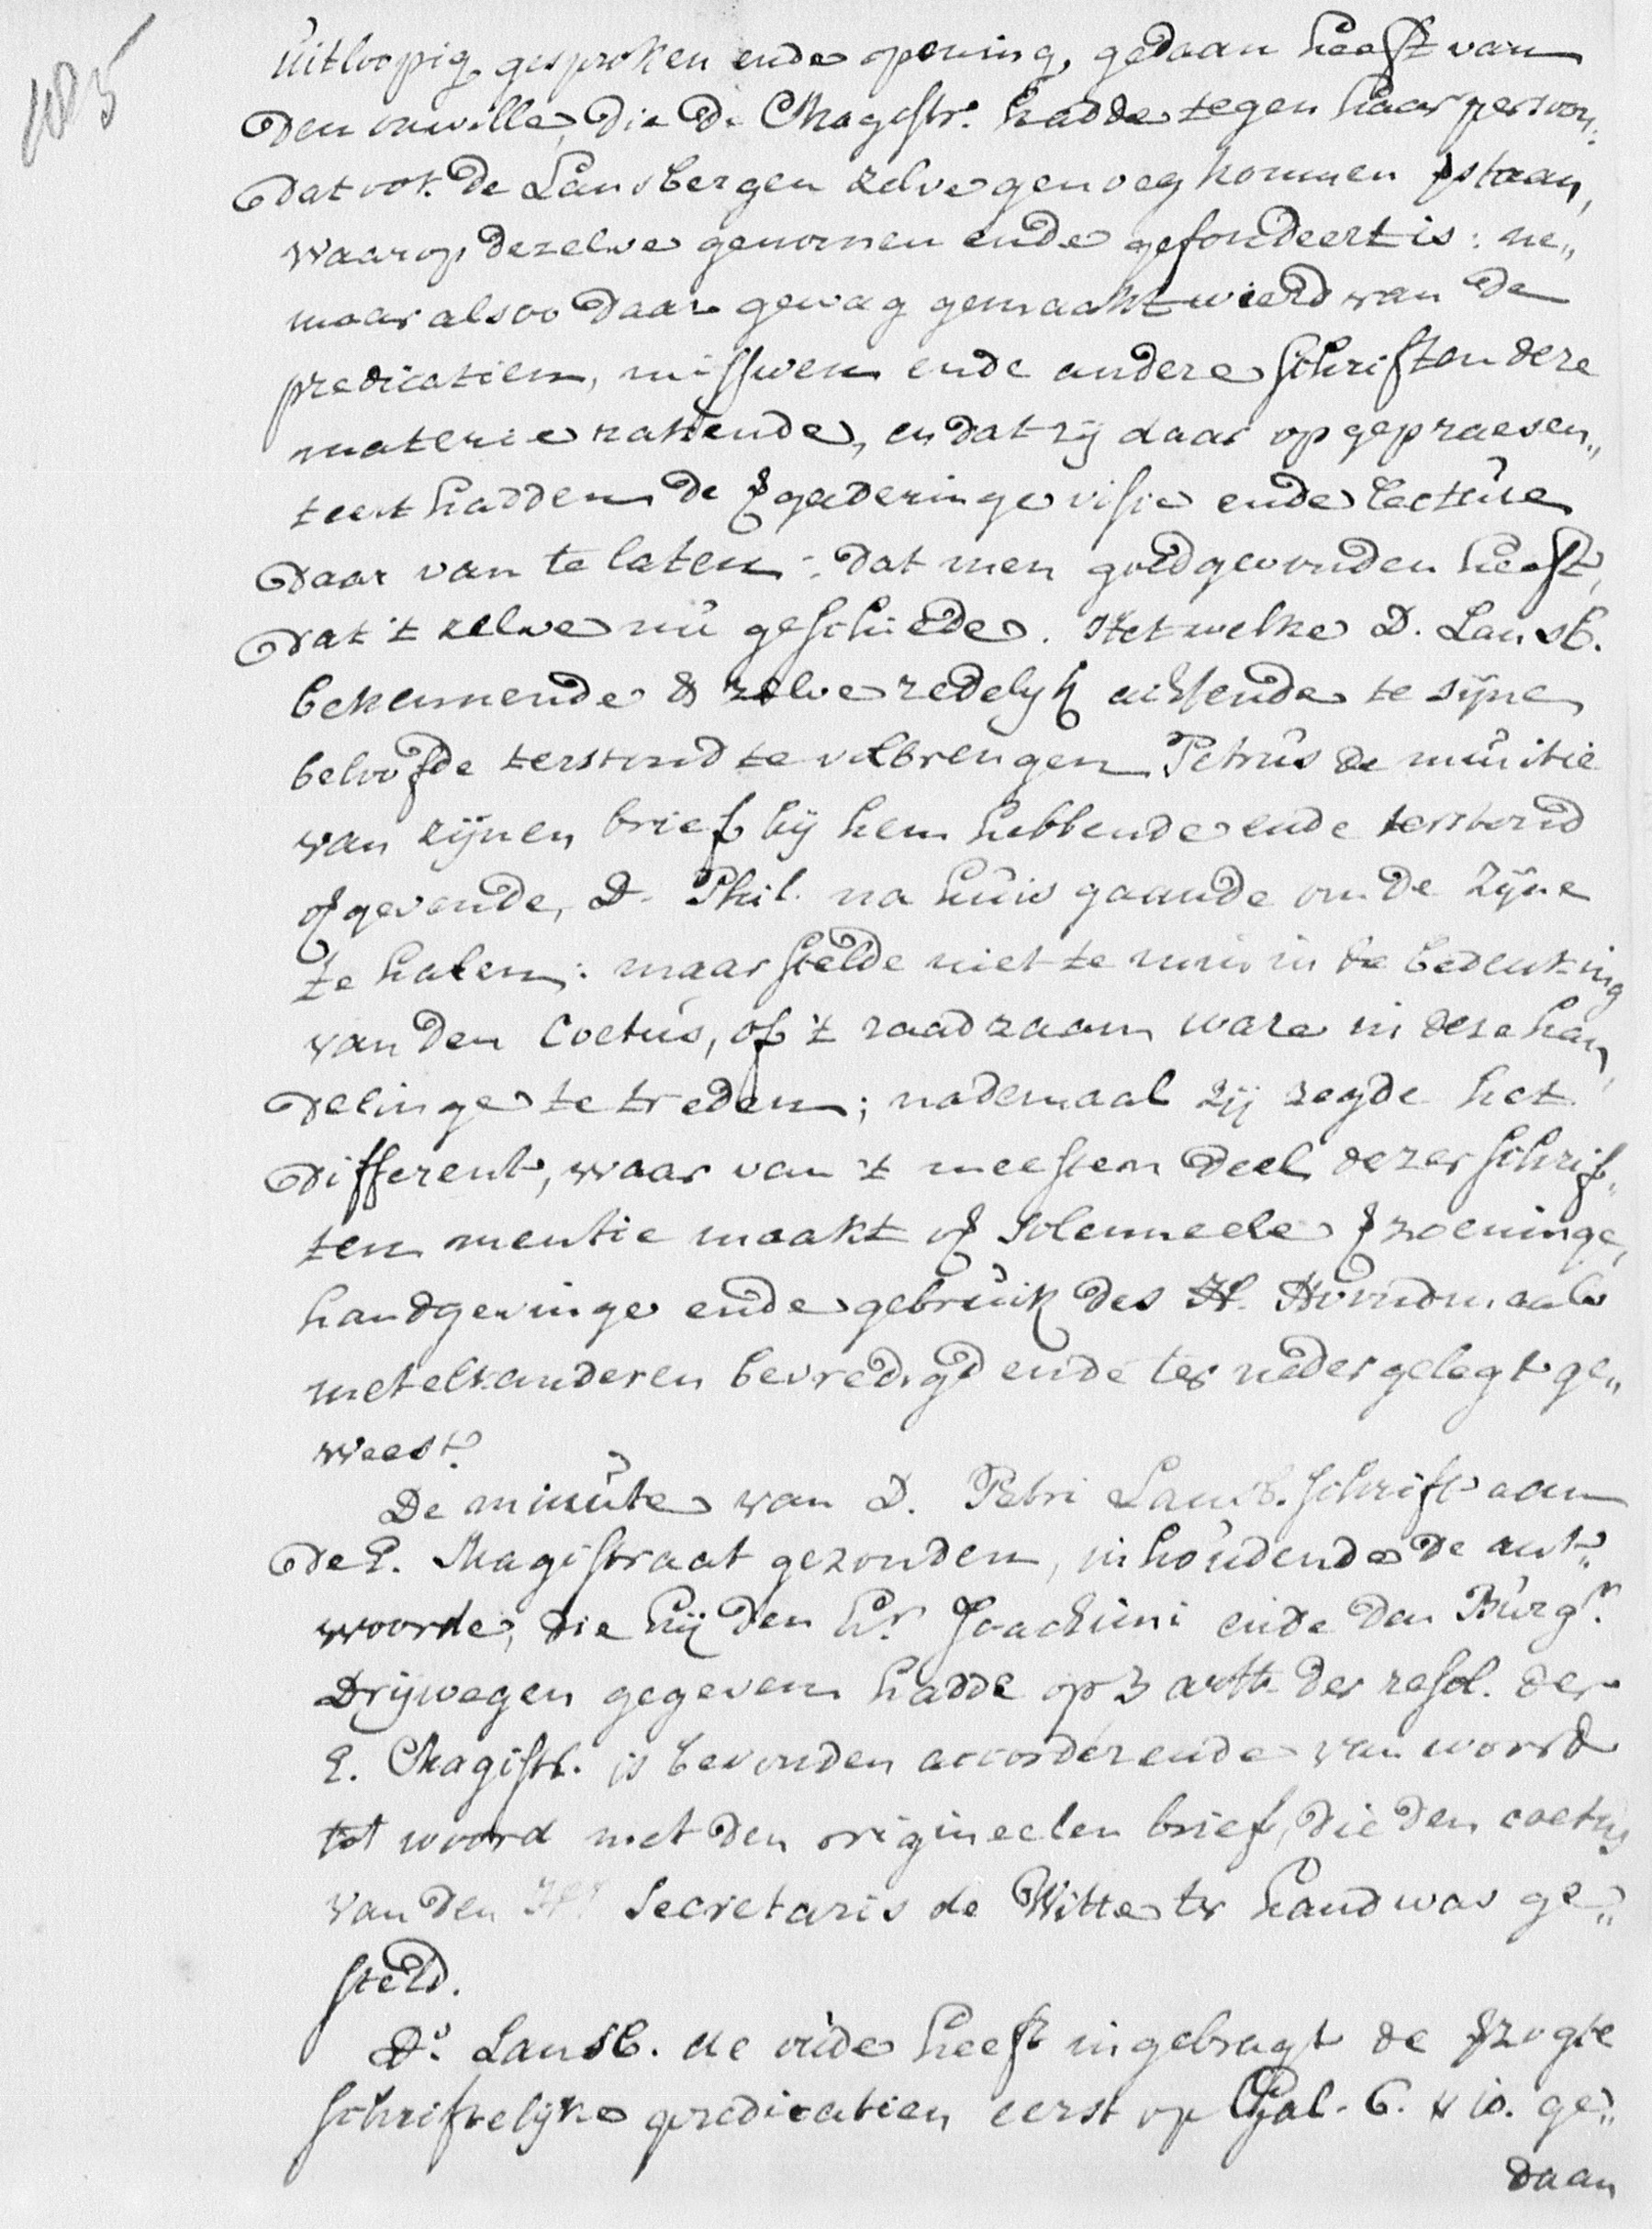 185
uitloopig gesproken ende opening gedaan heeft van
den onwille, die de Magistr. hadde tegen haar persoon:
dat ook de Lansbergen zelve genoeg konnen ꝟstaan,
waar op dezelve genomen ende gefondeert is: ne„
maar alsoo daar gewag gemaakt wierd van de
predicatien, missiven ende andere schriften deze
materie rakende, en dat zij daar op gepraesen„
teert hadden de ꝟgaderinge visie ende lecture
daar van te laten: dat men goedgevonden heeft,
dat 't zelve nu geschiede. Het welke D. Lansb.
bekennende & zelve redelijk achtende te sijne
beloofde terstond te volbrengen Petrus de minute
van zijnen brief bij hem hebbende ende terstond
ofgevende, D. Phil. na huis gaande om de zijne
te halen: maar stelde niet te min in de bedenking
van den Coetus, of 't raadzaam ware in deze han„
delinge te treden; nademaal zij zegde het
different, waar van 't meesten deel dezer schrif„
ten mentie maakt of solemneele ꝟzoeninge,
handgevinge ende gebruik des H. Avondmaals
met elkanderen bevredigd ende ter neder gelegt ge„
weest.
De minute van D. Petri Lansb. schrift aan
de E. Magistraat gezonden, inhoudende de ant„
woorde, die hij den Hr. Joachimi ende den Burgr.
Drijwegen gegeven hadde op 3 artt. der resol. der
E. Magistr. is bevonden accorderende van woord
tot woord met den origineelen brief, die den coetus
van den Hr. Secretaris de Witte ter hand was ge„
steld.
Do. Lansb. de oude heeft ingebragt de ꝟzogte
schriftelijke predicatien eerst op Gal. 6. ℣ 10. ge„
daan